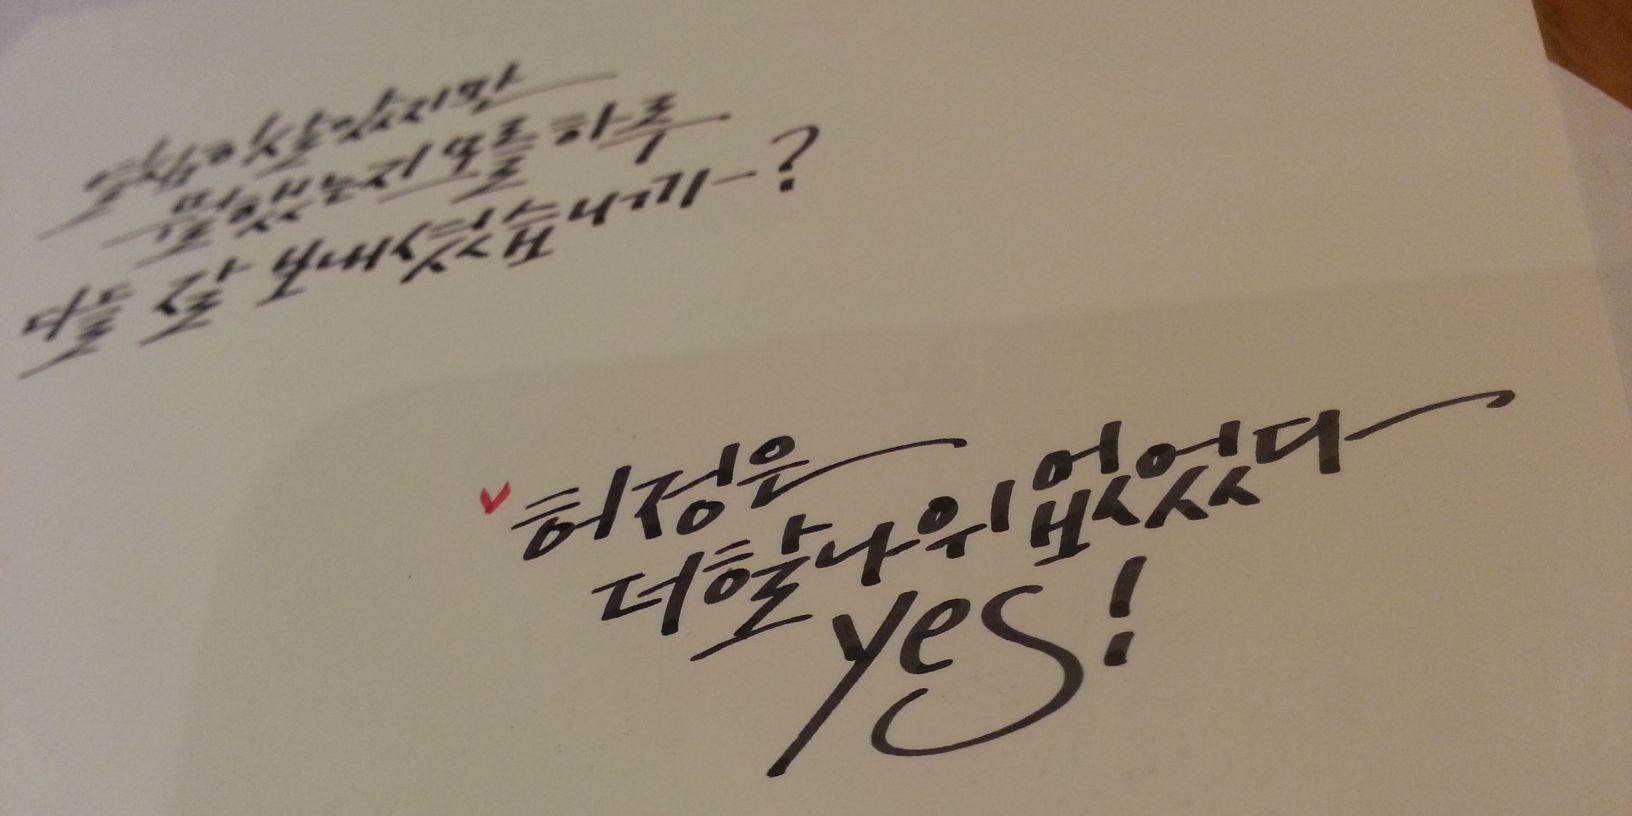 열심히살았지만
뭘했는지 모를 하루
다들 잘 보내셨습니까?
허정은
더할나위없었다
yes!